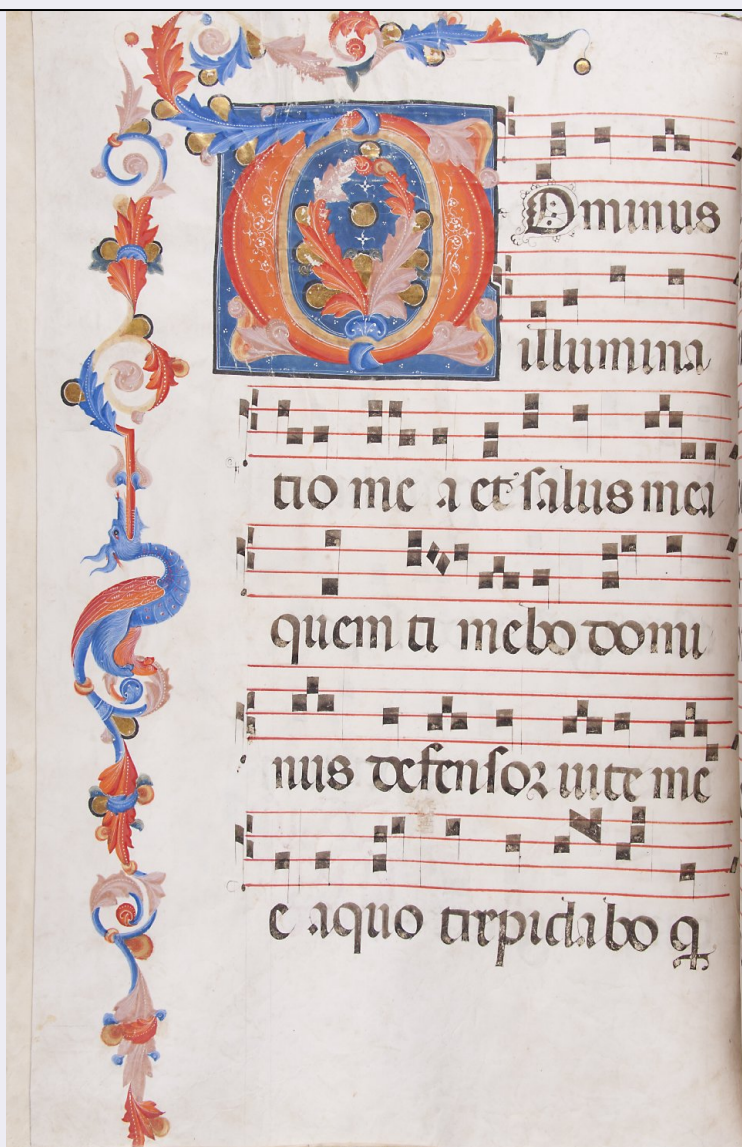 Dominus
illumina
tio me a et salus mea
quem ti mebo domi
nus defensor uite me
e a quo trepidabo q